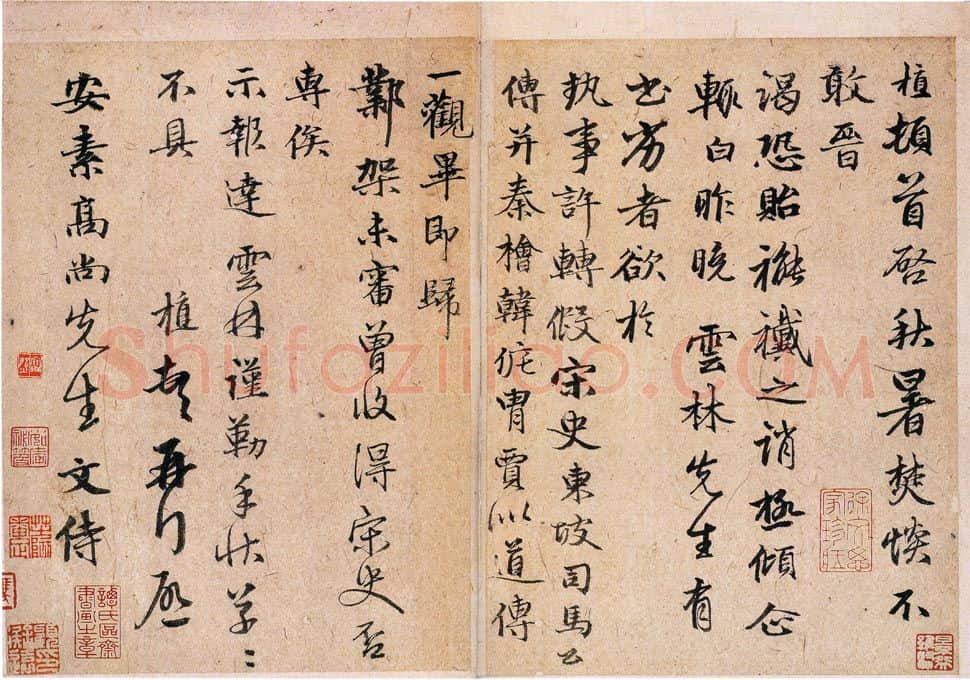 植頓首啓秋暑焚惔不
敢晉
謁恐貽褦襶之誚極傾企
輒白昨晚雲林先生有
書勞者欲於
執事許轉假宋史東坡司馬公
傳并秦檜韓侂胄賈似道傳
一觀畢即歸
鄴架未審曾收得宋史否
専俟
示報達雲林謹勒手狀草〻
不具
植頓首再行啓
安素高尚先生文侍
shufaziliao.COM
譚氏區齋書畫之章